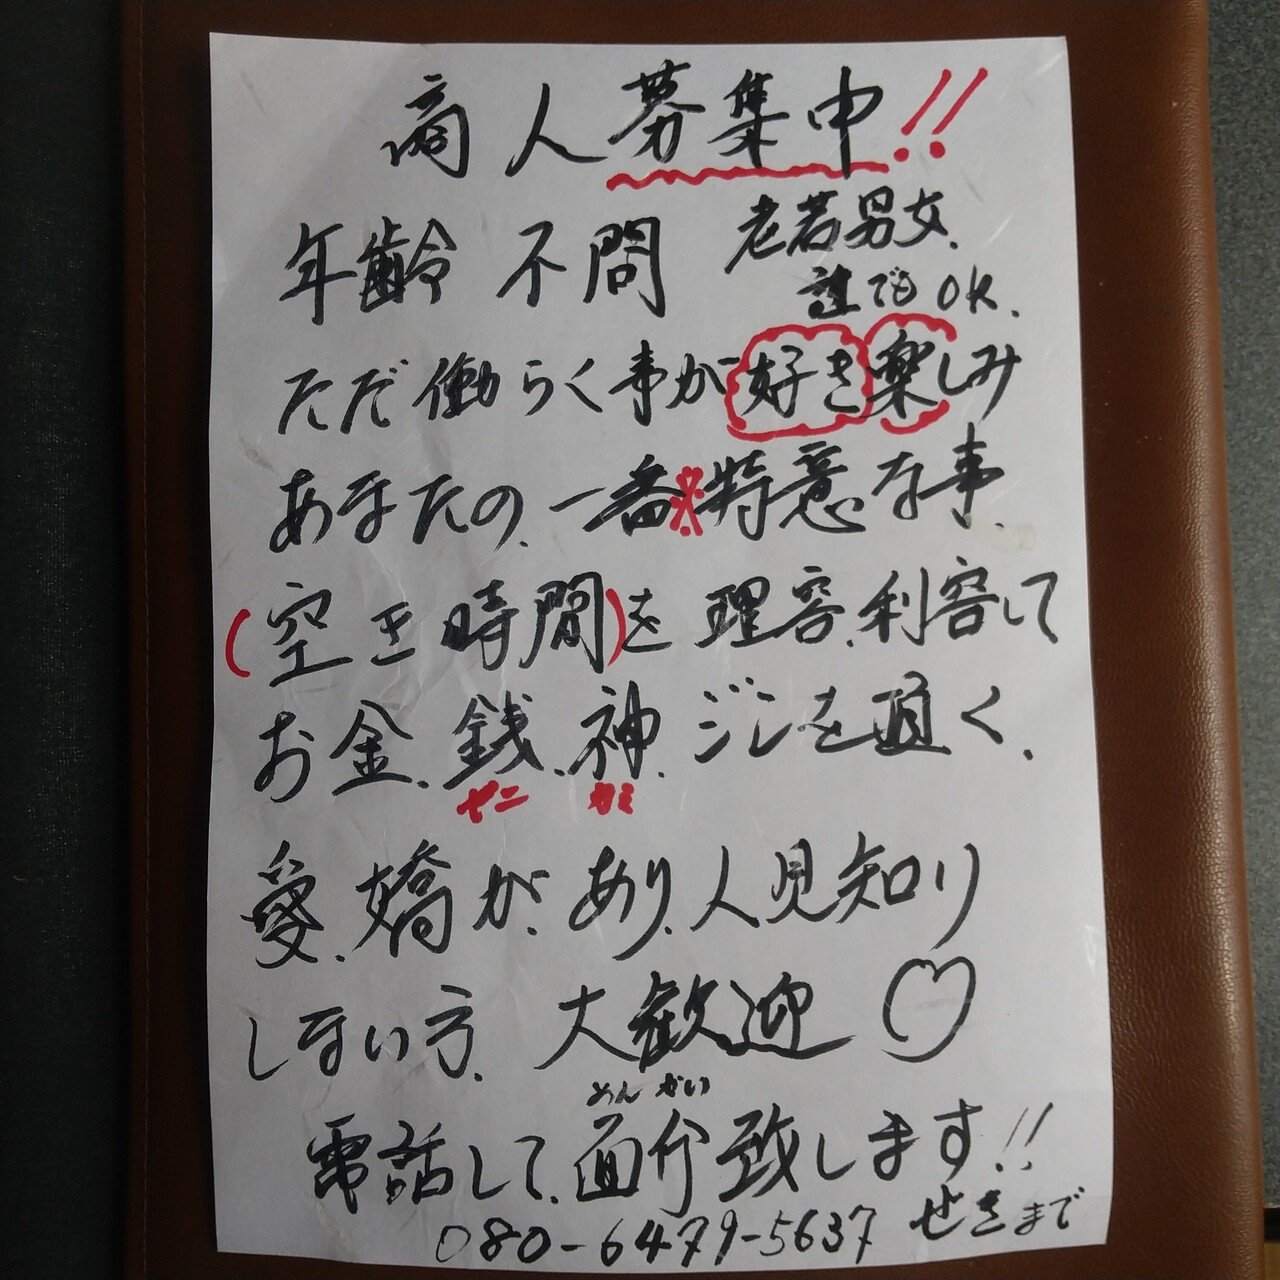 商人募集中!!
年齢不問 老若男女、
誰でもOK.
ただ働らく事が好き楽しみ
あなたの、一番※特意な事、
(空き時間)を理容、利容して
お金、銭、神、ジンを直く、
ゼニ カミ
愛、嬌が、あり、人見知り
しない方、大歓迎♡
めんかい
電話して、面介致します!!
080-6479-5637 せきまで